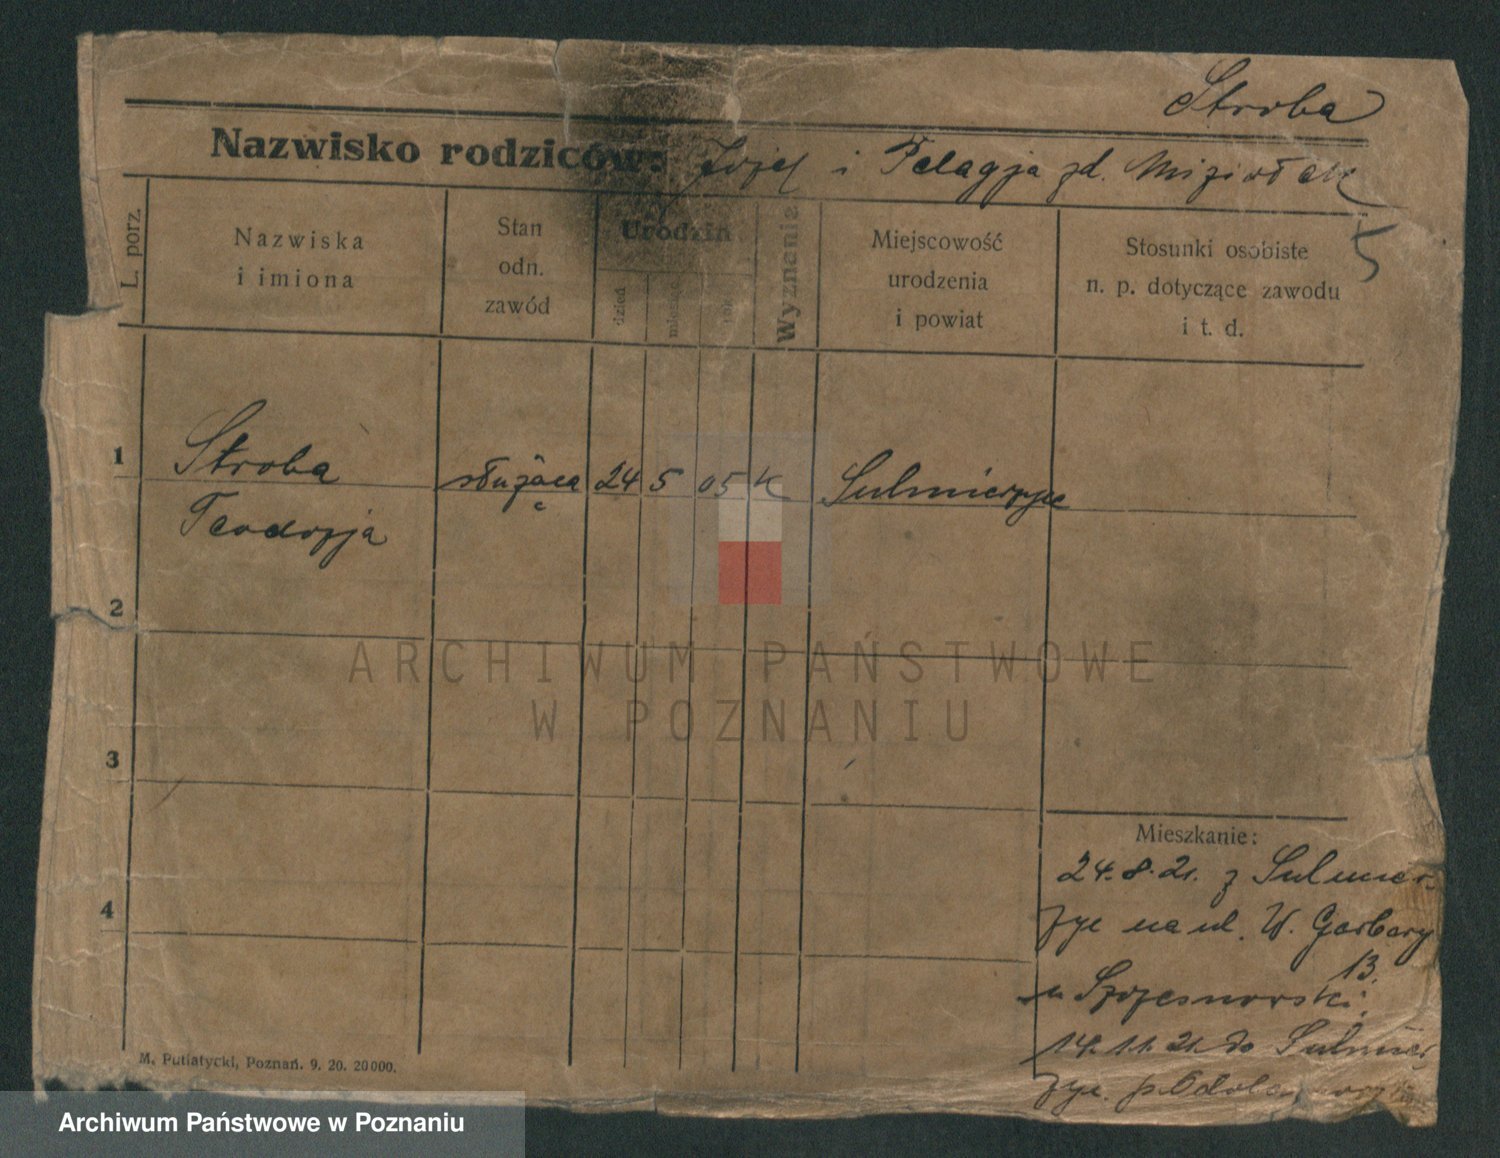 Stroba
Nazwisko rodziców: Józef i Pelagja zd. Miziołek
5
L. porz.
Nazwiska
i imiona
Stan
odn.
zawód
Urodzin
dzień
miesiąc
rok
Wyznanie
Miejscowość
urodzenia
i powiat
Stosunki osobiste
n. p. dotyczące zawodu
i t. d.
1
Stroba służąca 24 5 05 K Sulmierzyce
Teodozja
2
ARCHIWUM PAŃSTWOWE
W POZNANIU
3
4
Mieszkanie:
24.8.21. z Sulmier-
zyc na ul. W. Garbary
13.
u
14.11.21. do Sulmier
zyc. p.
M. Putiatycki, Poznań. 9. 20. 20000.
Archiwum Państwowe w Poznaniu